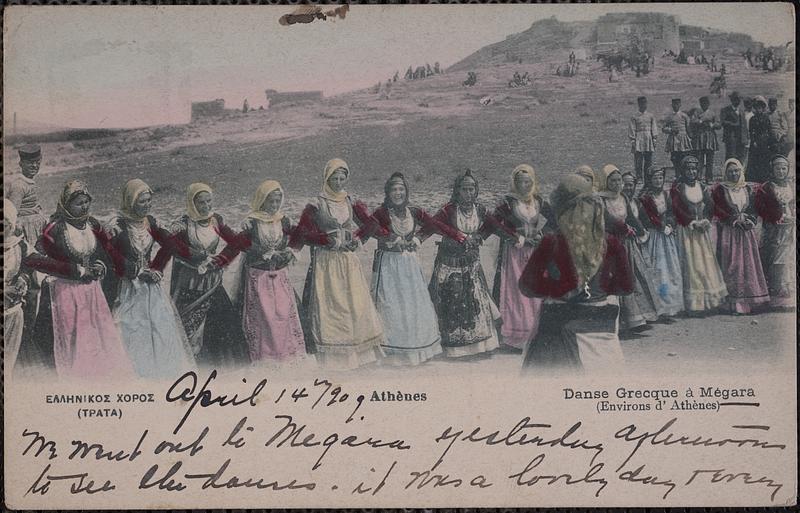 ΕΛΛΗΝΙΚΟΣ ΧΟΡΟΣ
(ΤΡΑΤΑ)
April 14th/909
Athènes
Danse Grecque à Mégara
(Environs d' Athènes)
We went out to Megara yesterday afternoon
to see the dances. it was a lovely day & every